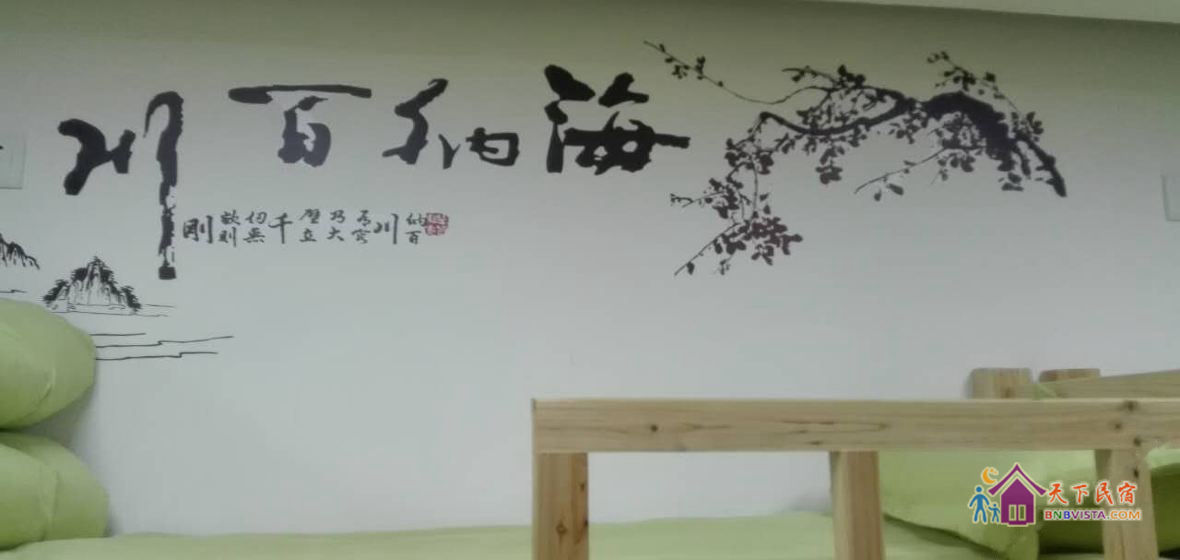 海纳百川
纳百川有容乃大壁立千仞無欲则刚
天下民宿
BNBVISTA.COM